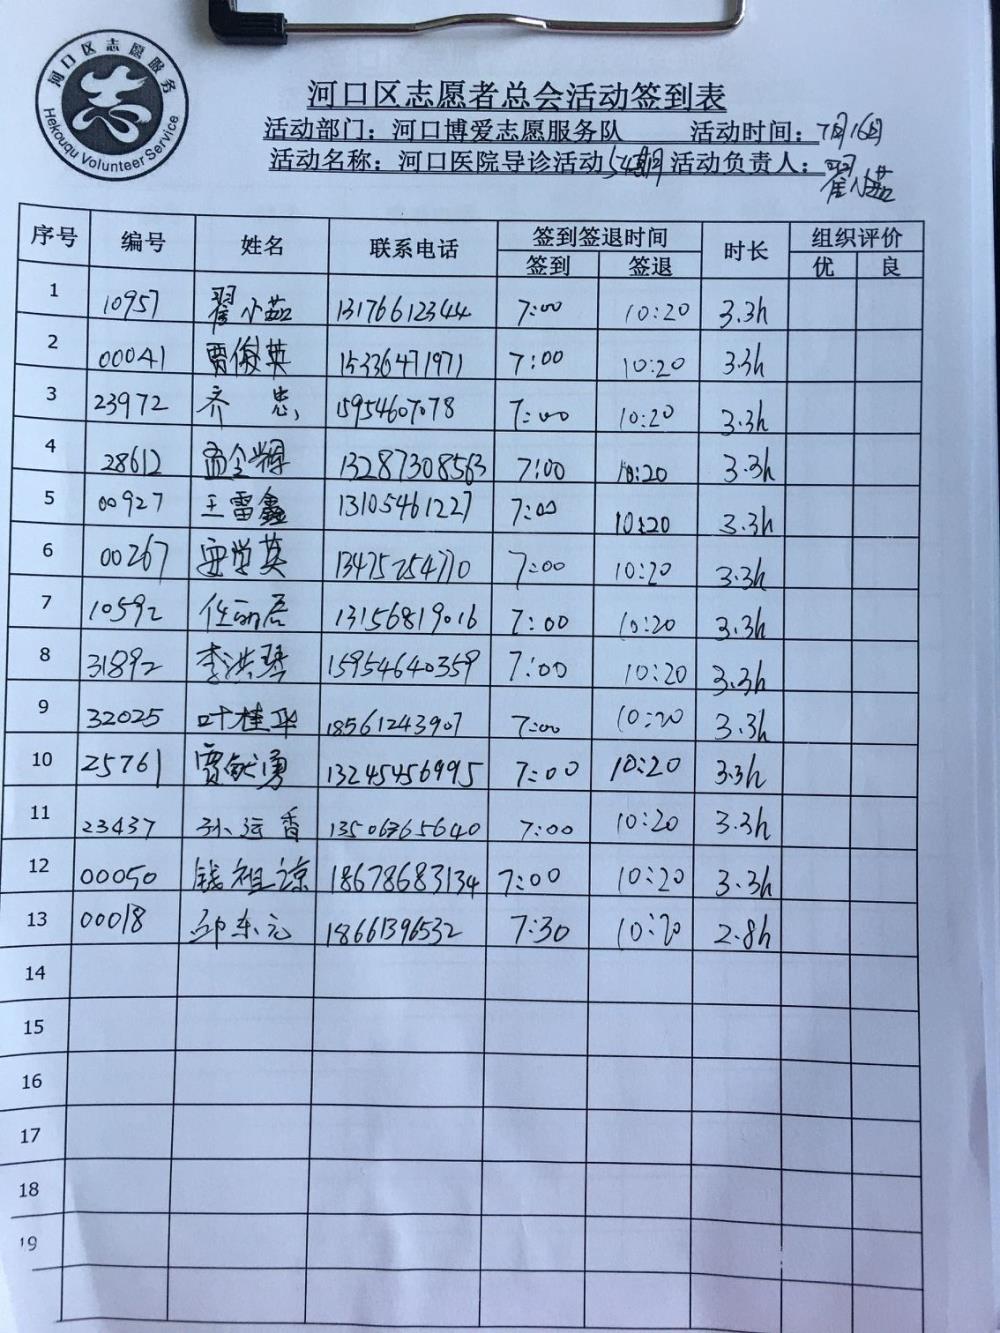 河口区志愿服务
志
Hekouqu Volunteer Service
河口区志愿者总会活动签到表
活动部门：河口博爱志愿服务队 活动时间：7月16日
活动名称：河口医院导诊活动54期 活动负责人：翟小茹
序号 编号 姓名 联系电话 签到签退时间 时长 组织评价
签到 签退 优 良
1 10957 翟小茹 13176612344 7:00 10:20 3.3h
2 00041 贾俊英 15336471971 7:00 10:20 3.3h
3 23972 齐忠 15954607078 7:00 10:20 3.3h
4 28612 孟全辉 13287308563 7:00 10:20 3.3h
5 00927 王雷鑫 13105461227 7:00 10:20 3.3h
6 00267 英 13475254770 7:00 10:20 3.3h
7 10592 任 13156819016 7:00 10:20 3.3h
8 31892 李洪琴 15954640359 7:00 10:20 3.3h
9 32025 叶桂华 18561243907 7:00 10:20 3.3h
10 25761 贾勇 13245456995 7:00 10:20 3.3h
11 23437 孙运香 13506365640 7:00 10:20 3.3h
12 00050 钱祖谅 18678683134 7:00 10:20 3.3h
13 00018 邱东元 18661396532 7:30 10:20 2.8h
14
15
16
17
18
19